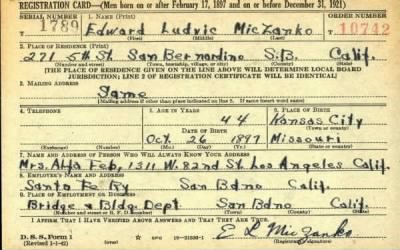 REGISTRATION CARD—(Men born on or after February 17, 1897 and on or before December 31, 1921)
SERIAL NUMBER 1. NAME (Print) ORDER NUMBER
1789 Edward Ludvic Miczanko 10742
(First) (Middle) (Last)
2. PLACE OF RESIDENCE (Print)
271 5th St. San Bernardino S.B. Calif.
(Number and street) (Town, township, village, or city) (County) (State)
[THE PLACE OF RESIDENCE GIVEN ON THE LINE ABOVE WILL DETERMINE LOCAL BOARD
JURISDICTION; LINE 2 OF REGISTRATION CERTIFICATE WILL BE IDENTICAL]
3. MAILING ADDRESS
Same
[Mailing address if other than place indicated on line 2. If same insert word same]
4. TELEPHONE 5. AGE IN YEARS 6. PLACE OF BIRTH
44 Kansas City
DATE OF BIRTH (Town or county)
Oct. 26 1897 Missouri
(Exchange) (Number) (Mo.) (Day) (Yr.) (State or country)
7. NAME AND ADDRESS OF PERSON WHO WILL ALWAYS KNOW YOUR ADDRESS
Mrs. Alta Feb, 1311 W. 82nd St. Los Angeles Calif.
8. EMPLOYER'S NAME AND ADDRESS
Santa Fe Ry San Bdno Calif.
9. PLACE OF EMPLOYMENT OR BUSINESS
Bridge & Bldg. Dept San Bdno Calif.
(Number and street or R. F. D. number) (Town) (County) (State)
I AFFIRM THAT I HAVE VERIFIED ABOVE ANSWERS AND THAT THEY ARE TRUE.
D. S. S. Form 1
(Revised 1-1-42) (over) E L Miczanko